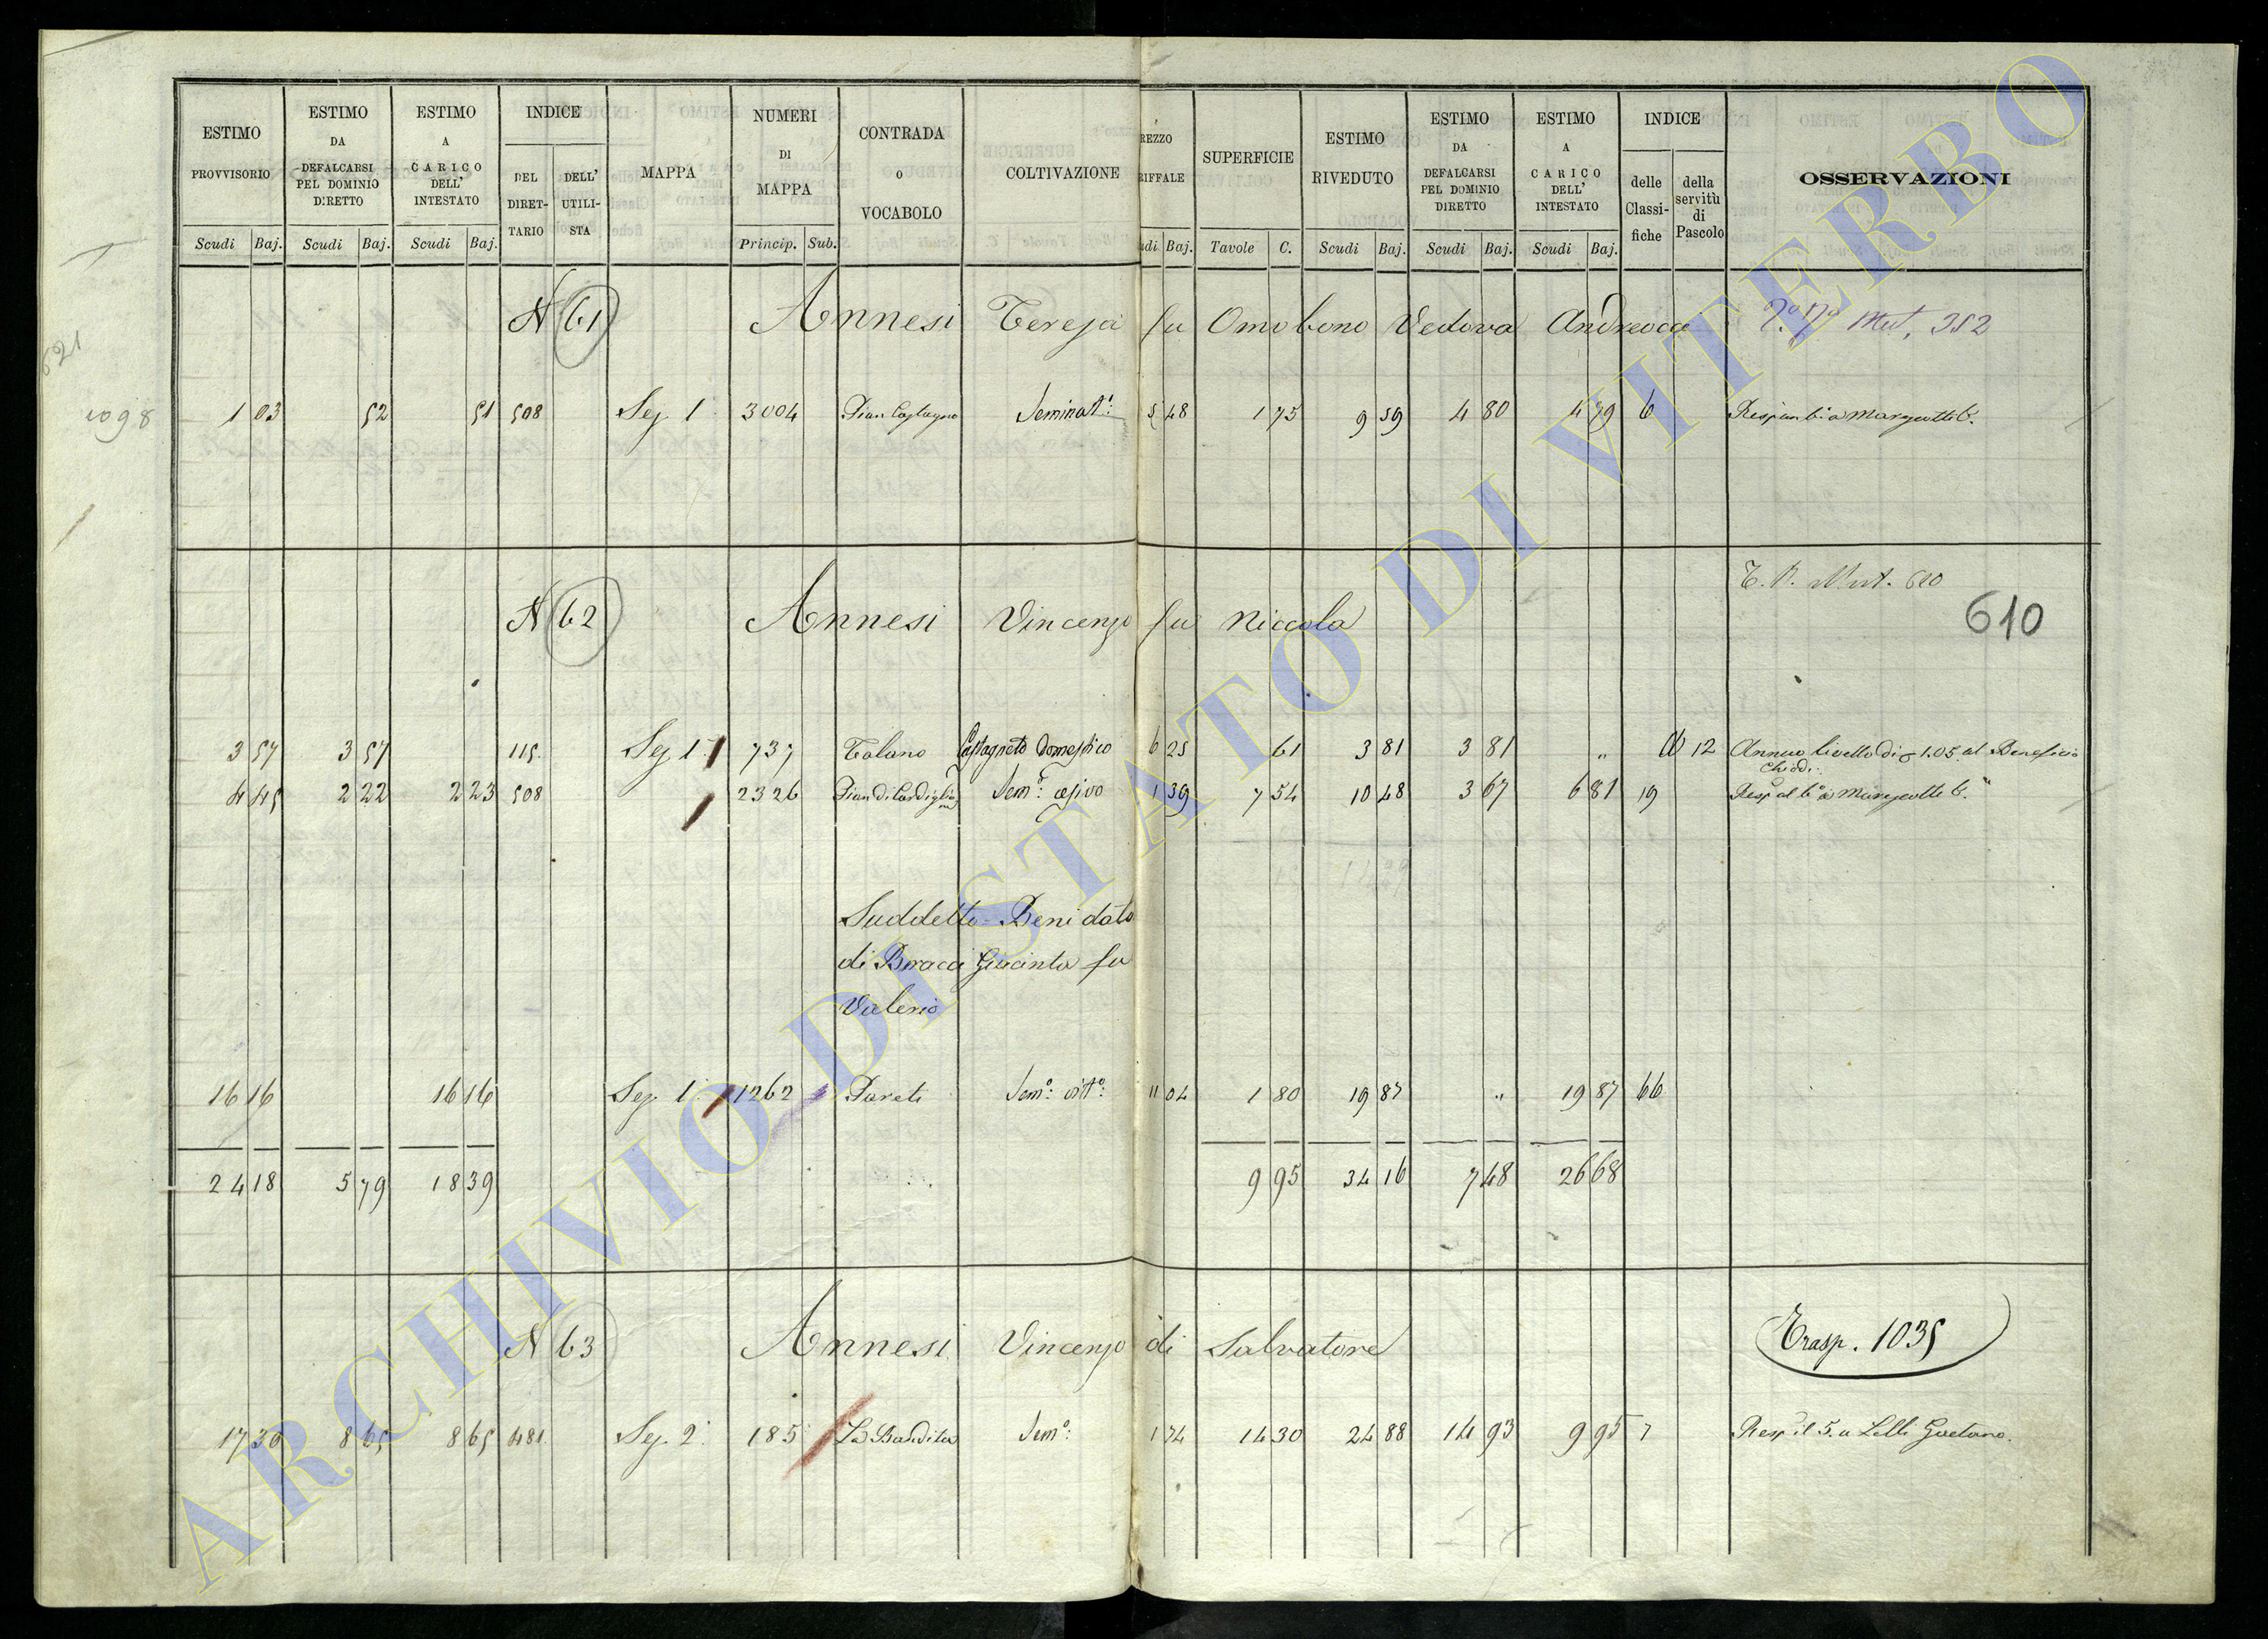 ESTIMO PROVVISORIO Scudi Baj.
ESTIMO DA DEFALCARSI PEL DOMINIO DIRETTO Scudi Baj.
ESTIMO A CARICO DELL' INTESTATO Scudi Baj.
INDICE DEL DIRETTARIO DELL' UTILISTA
MAPPA
NUMERI DI MAPPA Princip. Sub.
CONTRADA O VOCABOLO
COLTIVAZIONE
REZZO RIFFALE udi Baj.
SUPERFICIE Tavole C.
ESTIMO RIVEDUTO Scudi Baj.
ESTIMO DA DEFALCARSI PEL DOMINIO DIRETTO Scudi Baj.
ESTIMO A CARICO DELL' INTESTATO Scudi Baj.
INDICE delle Classifiche della servitù di Pascolo
OSSERVAZIONI
N 61 Annesi Teresa fu Omobono Vedova Andreocci Mut. 352
621
1098
1 03 52 51 508 Sez. 1 3004 Pian Castagno Seminat.º 5 48 1 75 9 59 4 80 4 79 6 a Margottti C.
T. P. Mut. 610
N 62 Annesi Vincenzo fu Niccola 610
3 57 3 57 115 Sez. 1 737 Talano Castagneto Domestico 6 25 61 3 81 3 81 " 12 Annuo livello di 1.05 al Beneficio
Chiodi
4 45 2 22 2 23 508 2326 Sem.º 1 39 7 54 10 48 3 67 6 81 19
Suddetto - Beni dato
di Bracci Giacinta fu
Valerio
16 16 16 16 Sez. 1 1262 Pareti Sem.º vitt.º 11 04 1 80 19 87 " 19 87 66
24 18 5 79 18 39 9 95 34 16 7 48 26 68
N 63 Annesi Vincenzo di Salvatore Trasp. 1035
17 30 8 65 8 65 481 Sez. 2 185 La Bandita Sem.º 1 74 14 30 24 88 14 93 9 95 7 Resp. il 5. a Lelli Gaetano.
ARCHIVIO DI STATO DI VITERBO